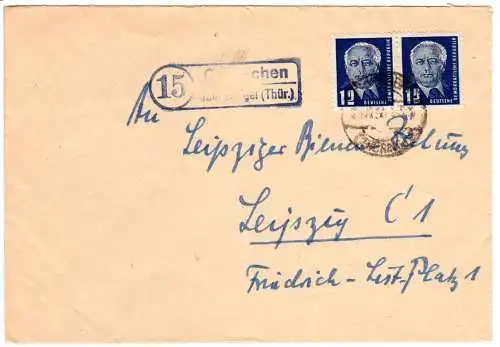 15
(Thür.)
12 DEUTSCHE DEMOKRATISCHE REPUBLIK
12 DEUTSCHE DEMOKRATISCHE REPUBLIK
An
Leipziger Bienen-Zeitung
Leipzig C 1
Friedrich-List-Platz 1